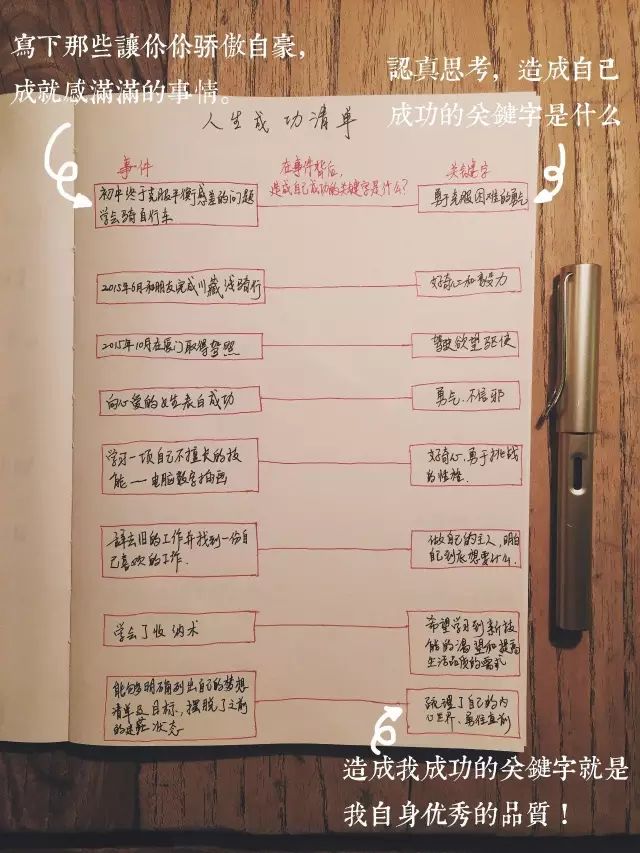 寫下那些讓伱伱骄傲自豪，
成就感滿滿的事情。
認真思考，造成自己
成功的关鍵字是什么
人生成功清单
事件
在事件背后，
造成自己成功的关键字是什么？
关键字
初中终于克服平衡感差的问题
学会骑自行车
勇于克服困难的勇气
2015年6月和朋友完成川藏线骑行
好奇心和毅力
2015年10月在厦门取得驾照
驾驶欲望驱使
向心爱的女生表白成功
勇气、不信邪
学习一项自己不擅长的技
能——电脑数字插画
好奇心、勇于挑战
的性格.
辞去旧的工作并找到一份自
己喜欢的工作.
做自己的主人，明白
自己到底想要什么.
学会了收纳术
希望学习到新技
能的渴望和提高
生活品质的需求
能够明确列出自己的梦想
清单及目标，摆脱了之前
的迷茫状态
梳理了自己的内
心世界、勇往直前
造成我成功的关鍵字就是
我自身优秀的品質！